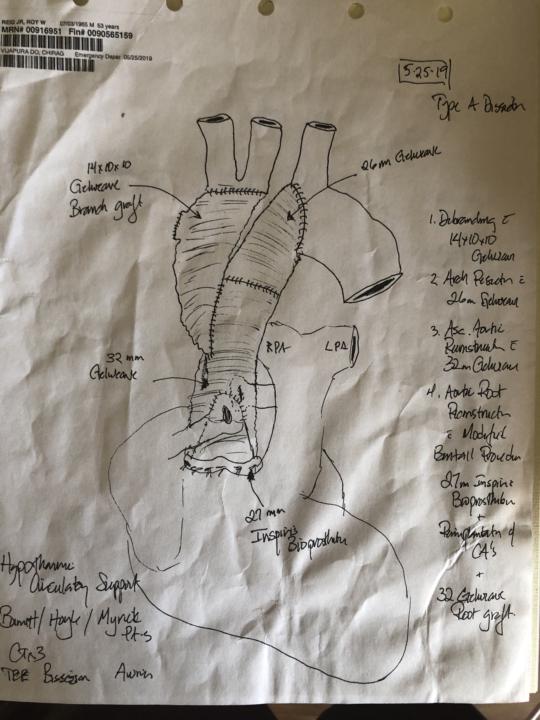 REID JR, ROY W 07/03/1965 M 53 years
MRN# 00916951 Fin# 0090565159
VIJAPURA DO, CHIRAG Emergency Depar: 05/25/2019
5-25-19
Type A Dissection
14x10x10
Gelweave
Branch graft
26 m Gelweave
1. Debranding c
14x10x10
Gelweave
2. Arch Resection c
26 m Gelweave
3. Asc. Aortic
Reconstruction c
32 m Gelweave
4. Aortic Root
Reconstruction
c Modified
Bentall Procedure
27 m Inspiris
Bioprosthetic
+
Reimplantation of
CA's
+
32 Gelweave
Root graft
RPA
LPA
32 mm
Gelweave
27 mm
Inspiris
Bioprosthetic
Hypothermic
Circulatory Support
Barnett/ Hoyle / Myrick
Pt-s
CTx3
TEE